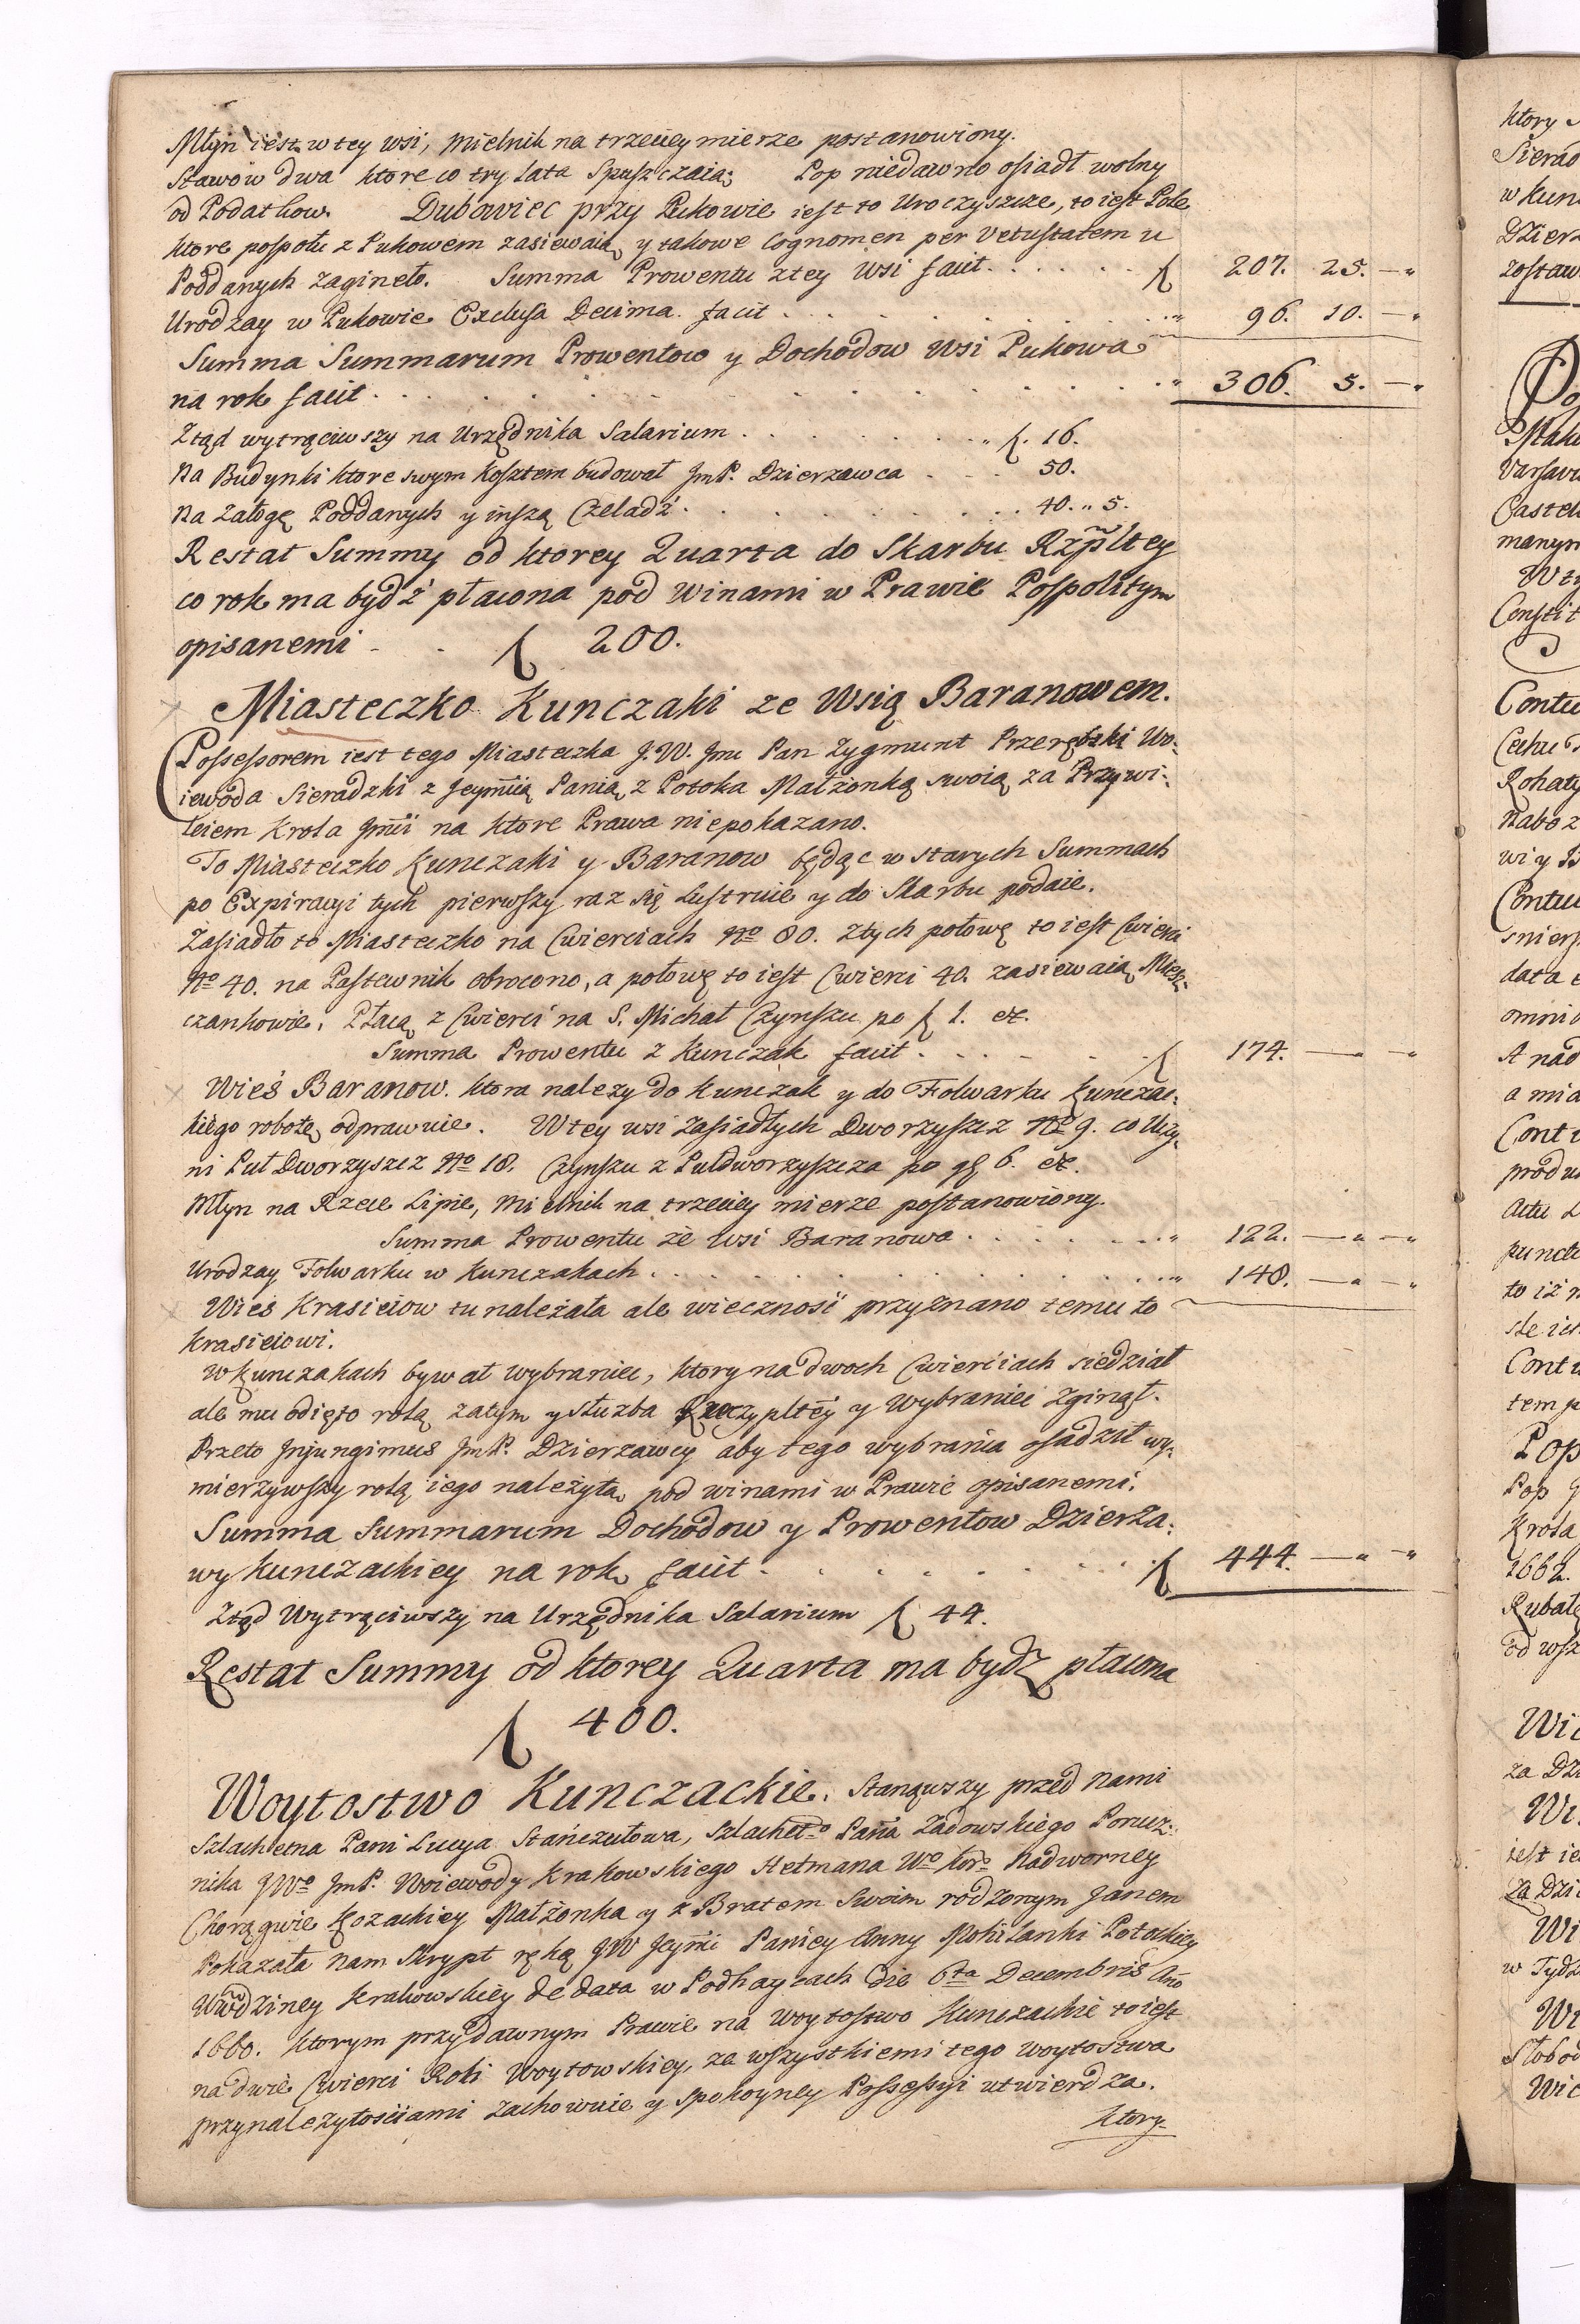 Młyn iest w tey wsi, Mielnik na trzeciey mierze postanowiony.
Stawow dwa ktore co try lata Spuszczaią; Pop niedawno osiadł wolny
od Podatkow. Dubowiec przy Pukowie iest to Uroczyszcze, to iest Pole
ktore pospołu z Pukowem zasiewaią y takowe Cognomen per Vetustatem u
Poddanych zagineło. Summa Prowentu z tey Wsi facit . . . . . . ƒ 207. 25. — "
Urodzay w Pukowie Exclusa Decima facit . . . . . . " 96. 10. — "
Summa Summarum Prowentow y Dochodow Wsi Pukowa
na rok facit . . . . . . " 306. 5. — "
Ztąd wytrąciwszy na Urzędnika Salarium . . . . . . " ƒ. 16.
Na Budynki ktore swym kosztem budował JmP. Dzierzawca . . . 50.
Na załogę Poddanych y inszą Czeladź . . . . . . 40. " 5.
Restat Summy od ktorey Quarta do Skarbu Rzpltey
co rok ma bydź płacona pod Winami w Prawie Pospolitym
opisanemi . . ƒ 200.
Miasteczko Kunczaki ze Wsią Baranowem.
Possessorem iest tego Miasteczka J.W. Jmc Pan Zygmunt Przerębski Wo:
iewoda Sieradzki z Jeymcią Panią z Potoka Małżonką swoią za Przywi:
leiem Krola Jmci na ktore Prawa niepokazano.
To Miasteczko Kunczaki y Baranow będąc w starych Summach
po Expiracyi tych pierwszy raz się Lustruie y do Skarbu podaie.
Zasiadło to Miasteczko na Cwierciach No 80. z tych połowę to iest Cwierci
No 40. na Pastewnik obrocono, a połowę to iest Cwierci 40. zasiewaią Miesz:
czankowie, Płacą z Cwierci na S. Michał Czynszu po ƒ 1. etc.
Summa Prowentu z Kunczak facit . . . . . . ƒ 174. — " — "
Wieś Baranow. ktora nalezy do Kunczak y do Folwarku Kunczac:
kiego robotę odprawuie. W tey wsi zasiadłych Dworzyszcz No 9. co Uczy:
ni Puł Dworzyszcz No 18. Czynszu z Puldworzyszcza po gr 6. etc.
Młyn na Rzece Lipie, Mielnik na trzeciey mierze postanowiony.
Summa Prowentu ze wsi Baranowa . . . . . . " 122. — " — "
Urodzay Folwarku w Kunczakach . . . . . . " 148. — " — "
Wieś Krasieiow tu należała ale wiecznosi przyznano temu to
Krasieiowi.
W Kunczakach bywał wybraniec, ktory na dwoch Cwierciach siedział
ale mu odięto rolą zatym y służba Rzeczypltey y Wybraniec zginął.
Przeto Injungimus JmP. Dzierzawcy aby tego wybrańca osadził wy:
mierzywszy rolą iego należytą pod winami w Prawie opisanemi.
Summa Summarum Dochodow y Prowentow Dzierża:
wy Kunczackiey na rok facit . . . . . . ƒ 444. — " — "
Ztąd Wytrąciwszy na Urzędnika Salarium ƒ 44.
Restat Summy od ktorey Quarta ma bydź płacona
ƒ 400.
Woytostwo Kunczackie. Stanąwszy przed nami
Szlachetna Pani Lucya Stańczułowa, Szlachetgo Pana Zadowskiego Porucz:
nika JWo JmP. Woiewody Krakowskiego Hetmana Wo Kor. Nadworney
Chorągwie Kozackiey Małżonka y z Bratem Swoim rodzonym Janem
Pokazała nam Skrypt ręką JW Jeymci Paniey Anny Mohilanki Potockiey
Wwodziney Krakowskiey de data w Podhaycach die 6ta Decembris Ano
1660. ktorym przy dawnym Prawie na Woytostwo Kunczackie to iest
na dwie Cwierci Roli Woytowskiey, ze wszystkiemi tego woytostwa
przynależytościami zachowuie y spokoyney Possessyi utwierdza.
ktory